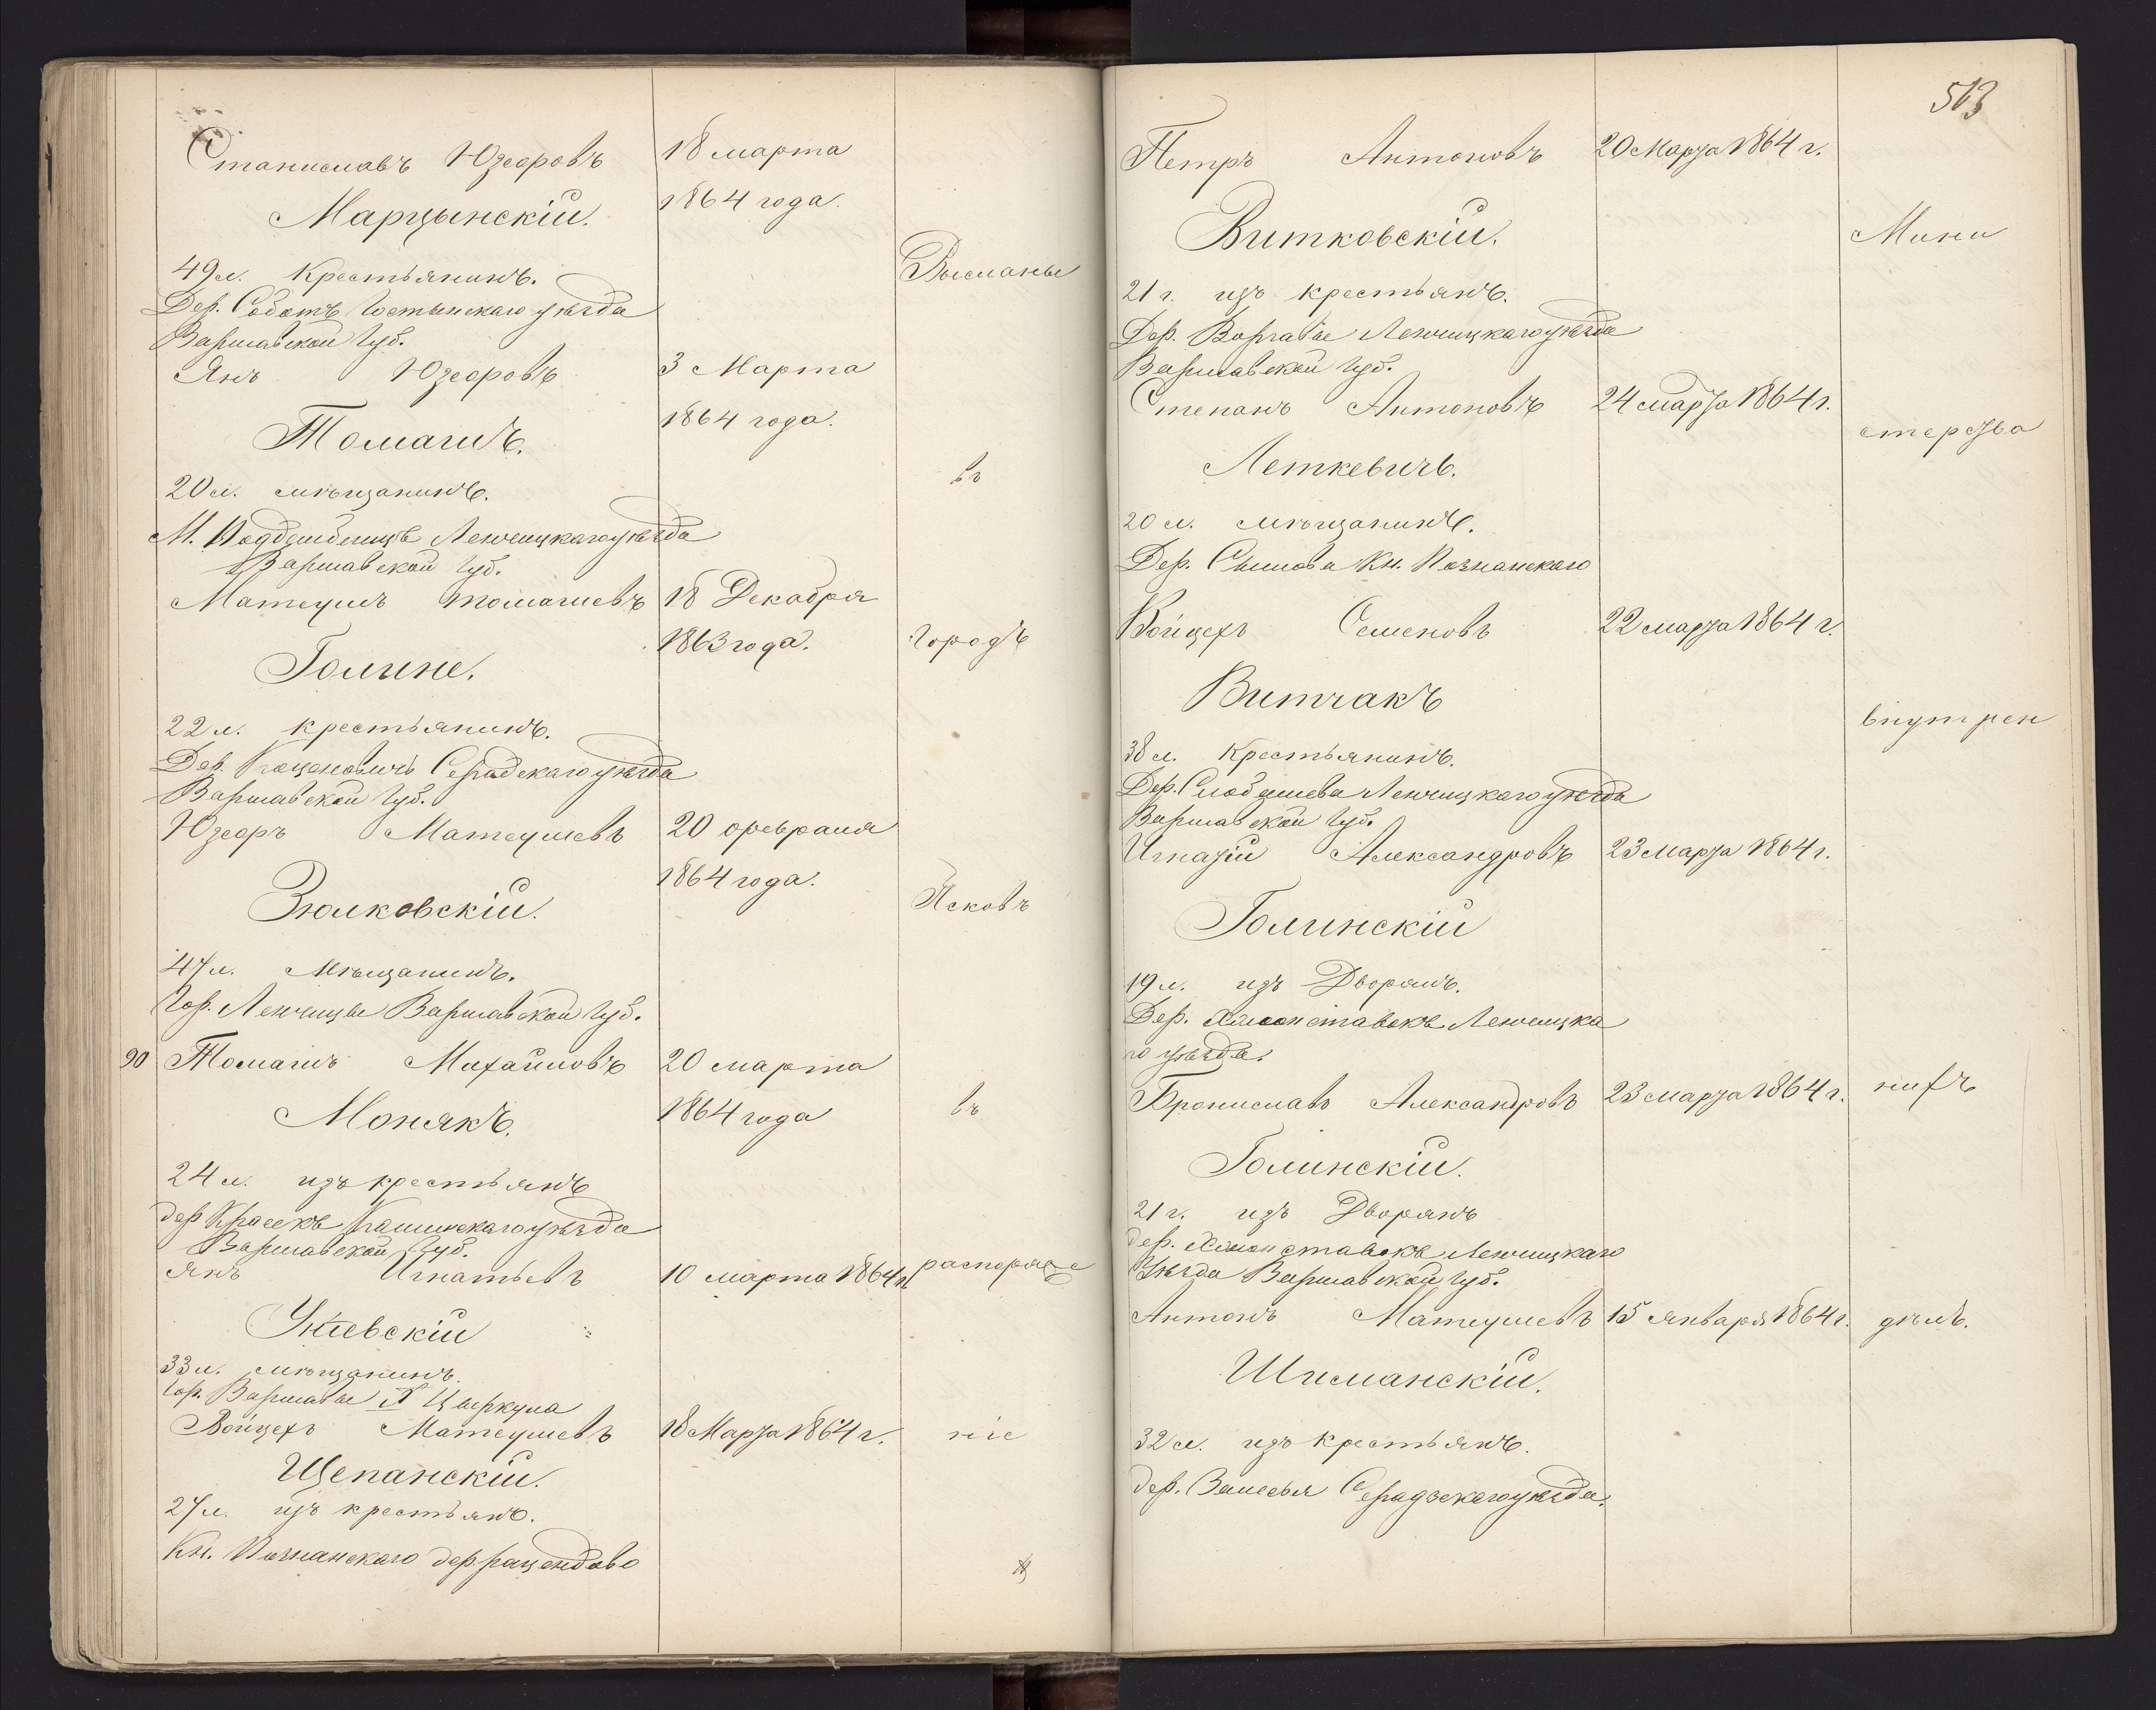 Станиславъ Юзефовъ 18 марта
Марцынскій. 1864 года.
49 л. Крестьянинъ. Высланы
Дер. Соботъ Гостынскаго уѣзда
Варшавской Губ.
Янъ Юзефовъ 3 Марта
Томашъ. 1864 года.
20 л. мѣщанинъ. въ
М. Ленчицкаго уѣзда
Варшавской Губ.
Матеушъ Томашевъ 18 Декабря
1863 года. Городъ
22 л. крестьянинъ.
Дер. Серадскаго уѣзда
Варшавской Губ.
Юзефъ Матеушевъ 20 февраля
Зюлковскій. 1864 года. Псковъ
47 л. Мѣщанинъ.
Гор. Ленчицы Варшавской Губ.
90 Томашъ Михайловъ 20 марта
Монякъ. 1864 года въ
24 л. изъ крестьянъ
дер Калишскаго уѣзда
Варшавской Губ.
Янъ Игнатьевъ 10 марта 1864 г. распоряже
Унѣевскій
33 л. мѣщанинъ.
Гор. Варшавы Циркула
Войцехъ Матеушевъ 18 Марта 1864 г. ніе
Щепанскій.
27 л. изъ крестьянъ.
Кн. Познанскаго дер.
513
Петръ Антоновъ 20 Марта 1864 г.
Витковскій. Мини
21 г. изъ крестьянъ.
Дер. Ленчицкаго уѣзда
Варшавской Губ.
Степанъ Антоновъ 24 марта 1864 г.
стерства
Леткевичъ.
20 л. мѣщанинъ.
Дер. Кн. Познанскаго
Войцехъ Семеновъ 22 марта 1864 г.
Витчакъ
внутрен
38 л. Крестьянинъ.
Дер. Ленчицкаго уѣзда
Варшавской Губ.
Игнатій Александровъ 23 Марта 1864 г.
Голинскій
19 л. изъ Дворянъ.
Дер. Ленчицка
го уѣзда.
Брониславъ Александровъ 23 марта 1864 г. нихъ
Голинскій.
21 г. изъ Дворянъ
дер. Ленчицкаго
Уѣзда Варшавской Губ.
Антонъ Матеушевъ 15 Января 1864 г. дѣлъ.
Шиманскій.
32 л. изъ крестьянъ.
дер. Залесья Серадзскаго уѣзда.